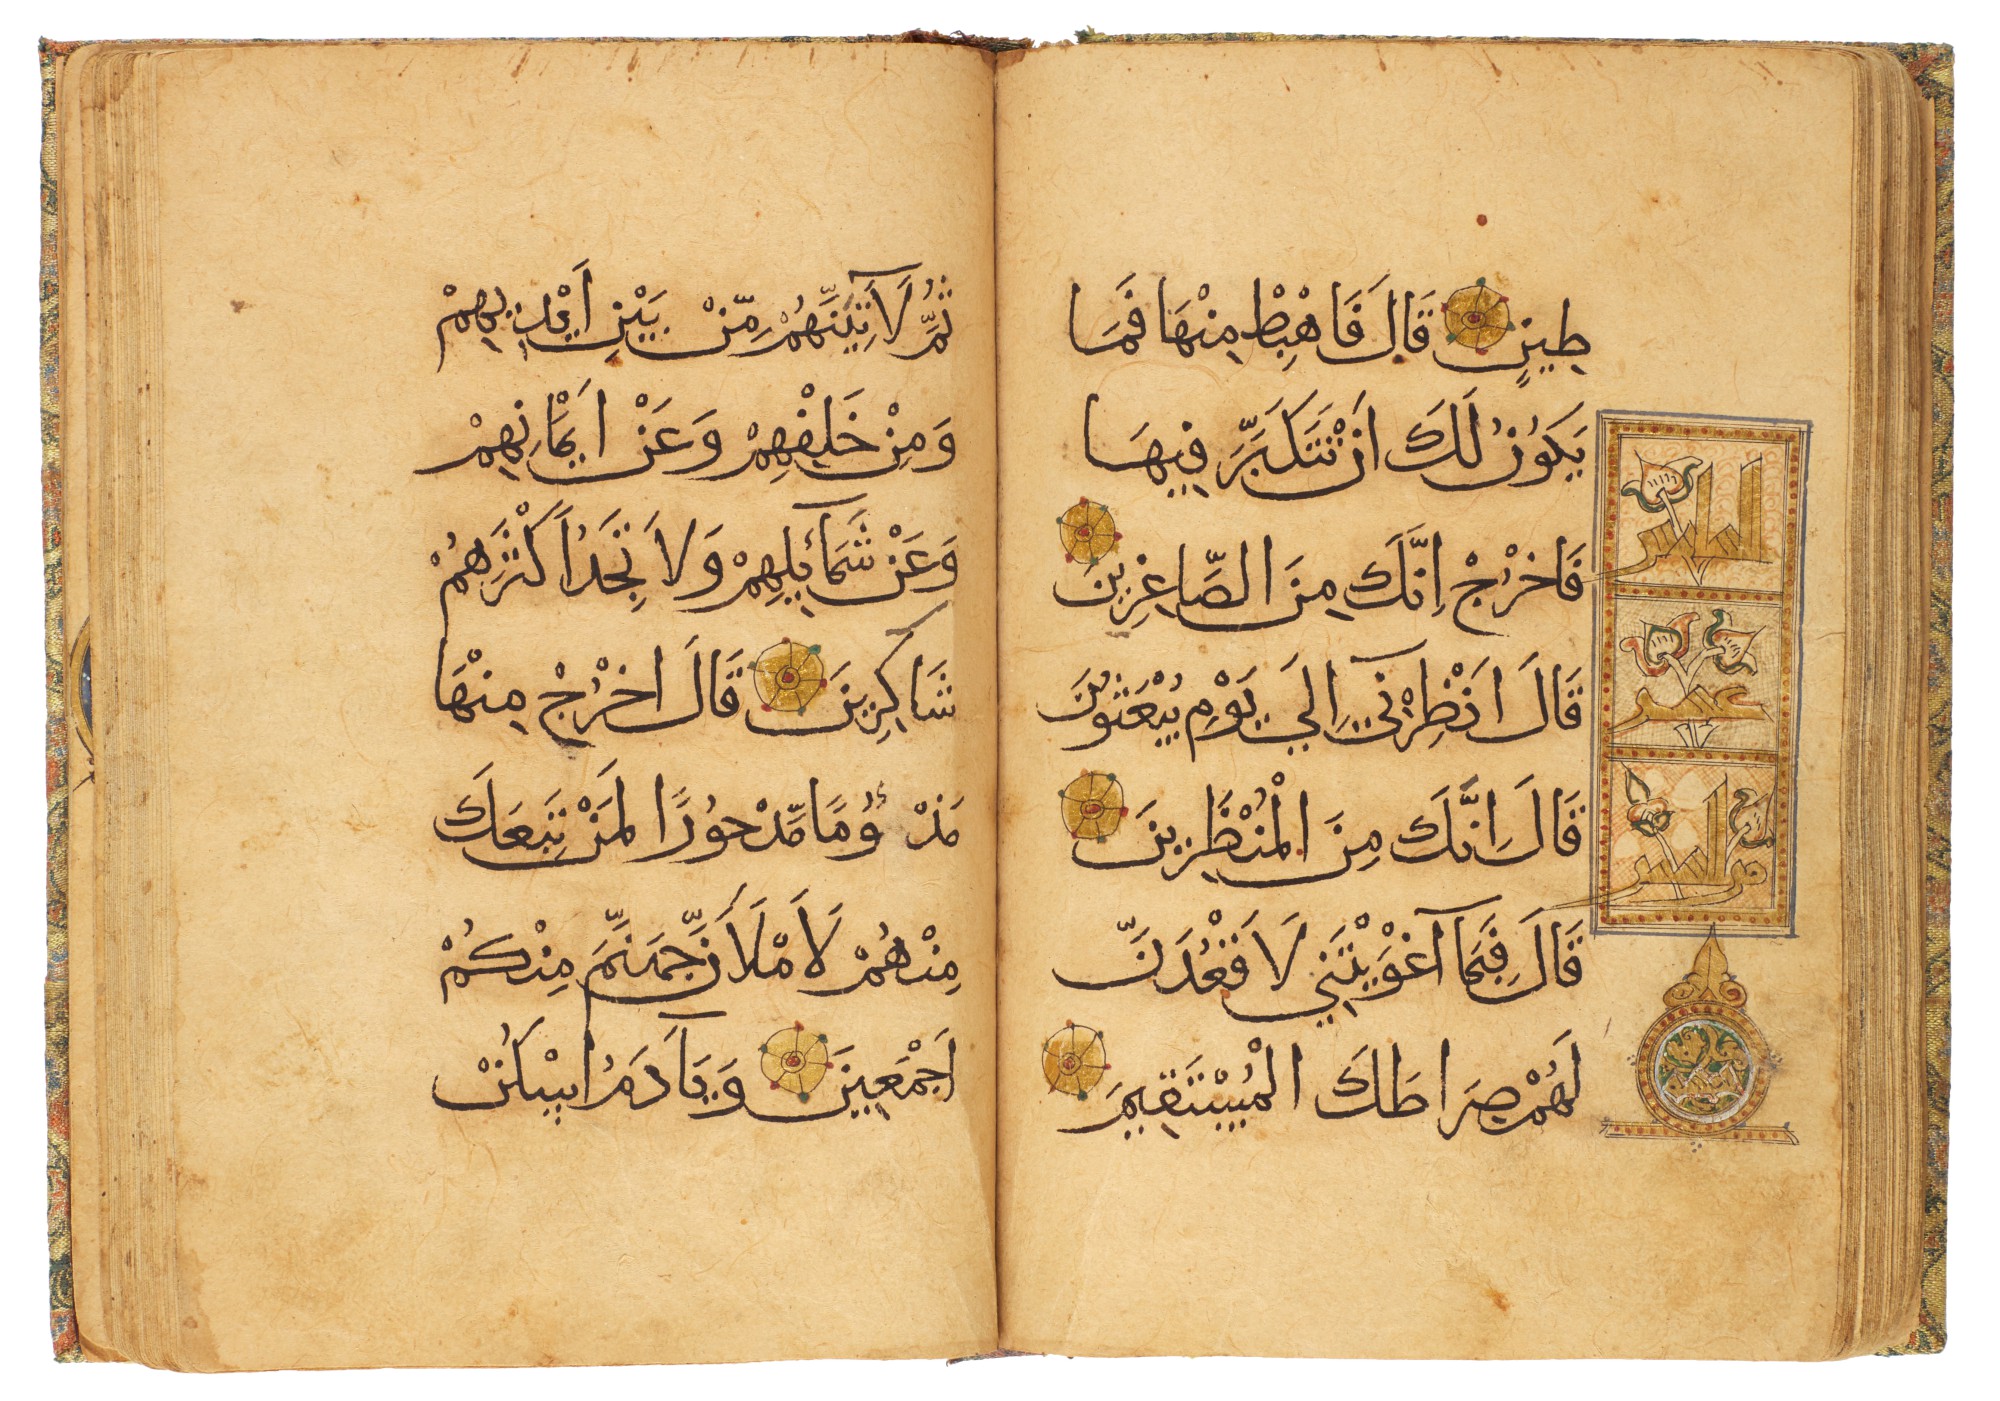 طِينٍ قَالَ فَاهْبِطْ مِنْهَا فَمَا
يَكُونُ لَكَ اَنْ تَتَكَبَّرَ فِيهَا
فَاخْرُجْ اِنَّكَ مِنَ الصَّاغِرِينَ
قَالَ اَنْظِرْنِي اِلَي يَوْمِ يُبْعَثُونَ
قَالَ اِنَّكَ مِنَ الْمُنْظَرِينَ
قَالَ فَبِمَا اَغْوَيْتَنِي لَاَقْعُدَنَّ
لَهُمْ صِرَاطَكَ الْمُسْتَقِيمَ
ثُمَّ لَاَتِيَنَّهُمْ مِّنْ بَيْنِ اَيْدِيهِمْ
وَمِنْ خَلْفِهِمْ وَعَنْ اَيْمَانِهِمْ
وَعَنْ شَمَائِلِهِمْ وَلَا تَجِدُ اَكْثَرَهُمْ
شَاكِرِينَ قَالَ اخْرُجْ مِنْهَا
مَذْءُومًا مَّدْحُورًا لَمَنْ تَبِعَكَ
مِنْهُمْ لَاَمْلَاَنَّ جَهَنَّمَ مِنْكُمْ
اَجْمَعِينَ وَيَا اَدَمُ اسْكُنْ